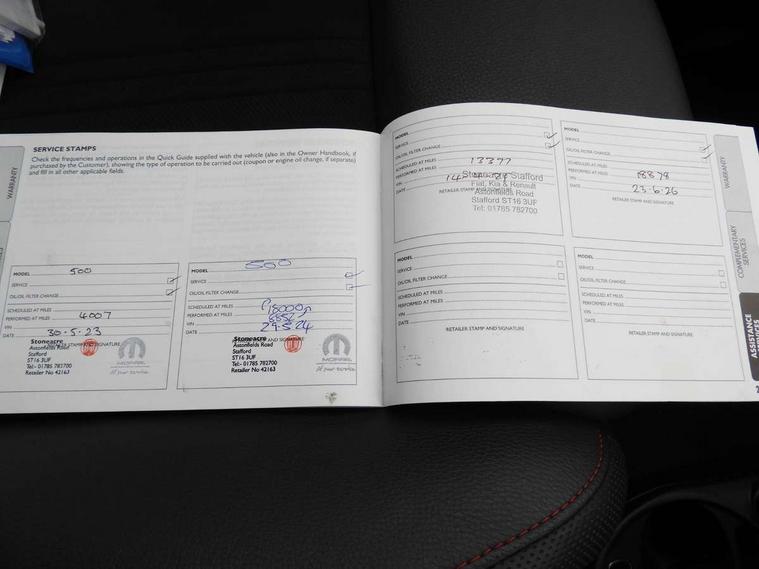 SERVICE STAMPS
Check the frequencies and operations in the Quick Guide supplied with the vehicle (also in the Owner Handbook, if
purchased by the Customer), showing the type of operation to be carried out (coupon or engine oil change, if separate)
and fill in all other applicable fields.
WARRANTY
MODEL 500
SERVICE
OIL/OIL FILTER CHANGE
SCHEDULED AT MILES
PERFORMED AT MILES 4007
VIN
DATE 30-5-23
Stoneacre
Astonfields Road
Stafford
ST16 3UF
Tel:- 01785 782700
Retailer No 42163
MOPAR
MODEL 500
SERVICE
OIL/OIL FILTER CHANGE
SCHEDULED AT MILES
PERFORMED AT MILES
VIN
DATE 29.5.24
Stoneacre
Astonfields Road
Stafford
ST16 3UF
Tel:- 01785 782700
Retailer No 42163
MOPAR
MODEL
SERVICE
OIL/OIL FILTER CHANGE
SCHEDULED AT MILES 13377
PERFORMED AT MILES
VIN
DATE
RETAILER STAMP AND SIGNATURE
Stoneacre Stafford
Fiat, Kia & Renault
Astonfields Road
Stafford ST16 3UF
Tel: 01785 782700
MODEL
SERVICE
OIL/OIL FILTER CHANGE
SCHEDULED AT MILES
PERFORMED AT MILES 18878
VIN
DATE 23.6.26
RETAILER STAMP AND SIGNATURE
MODEL
SERVICE
OIL/OIL FILTER CHANGE
SCHEDULED AT MILES
PERFORMED AT MILES
VIN
DATE
RETAILER STAMP AND SIGNATURE
MODEL
SERVICE
OIL/OIL FILTER CHANGE
SCHEDULED AT MILES
PERFORMED AT MILES
VIN
DATE
RETAILER STAMP AND SIGNATURE
WARRANTY
COMPLEMENTARY
SERVICES
ASSISTANCE
SERVICES